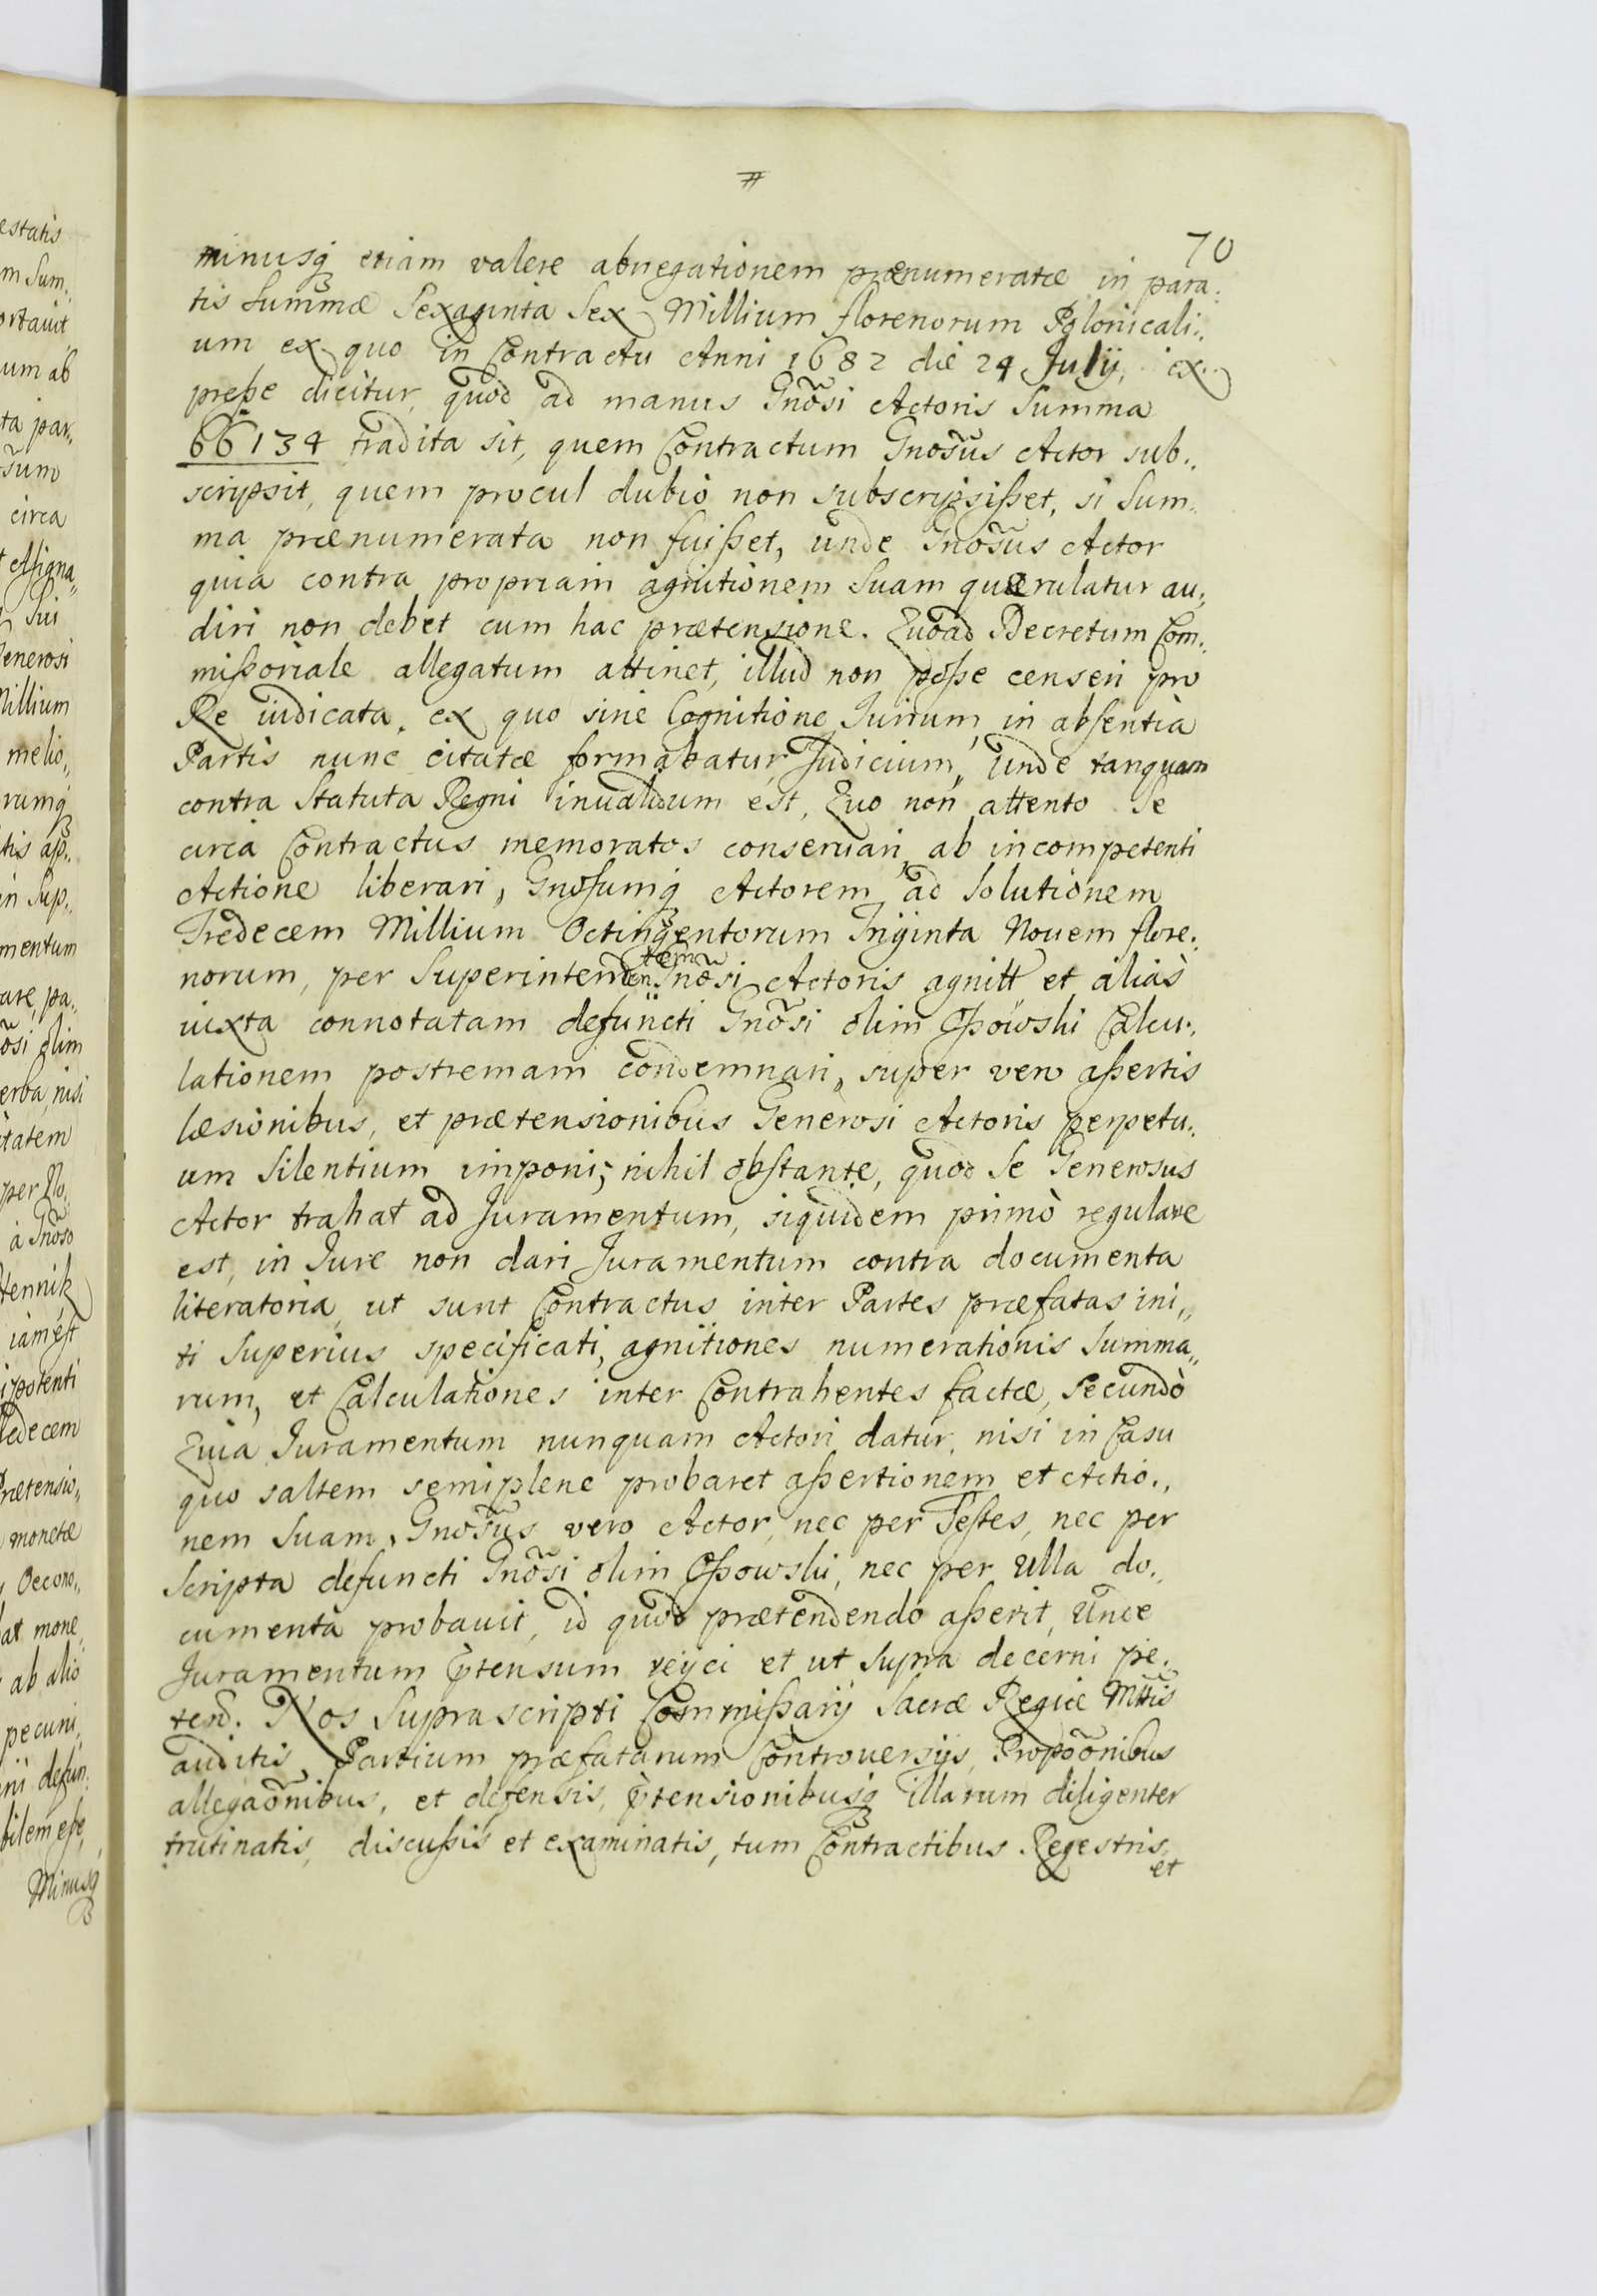 70
minusq̃ etiam valere abnegationem prænumeratæ in para:
tis Summæ Sexaginta Sex Millium florenorum Polonicali:
um ex quo in Contractu Anni 1682 die 24 July, ex:
preße dicitur, quod ad manus Gnõsi Actoris Summa
66134 tradita sit, quem Contractum Gnosũs Actor sub:
scripsit, quem procul dubio non subscripsißet, si Sum:
ma prænumerata non fuißet, unde Gnosũs Actor
quia contra propriam agnitionem Suam quærulatur au:
diri non debet cum hac prætensione. Quoad Decretum Com:
mißoriale allegatum attinet, illud non poße censeri pro
Re iudicata, ex quo sine Cognitione Jurium, in absentia
Partis nunc citatæ formabatur Judicium, Unde tanquam
contra Statuta Regni inualidum est, Quo non attento Se
circa Contractus memoratos conseruari, ab incompetenti
Actione liberari, Gnõsumq̃ Actorem ad Solutionem
Tredecem Millium Octingentorum Triginta Nouem flore:
norum, per Superintenden:tem Gnõsi Actoris agnitt et aliàs
iuxta connotatam defuncti Gnõsi olim Oßowski Calcu:
lationem postremam condemnari, super vero aßertis
læsionibus, et prætensionibus Generosi Actoris perpetu:
um Silentium imponi; nihil obstante, quod Se Generosus
Actor trahat ad Juramentum, siquidem primò regulare
est, in Jure non dari Juramentum contra documenta
literatoria, ut sunt Contractus inter Partes præfatas ini„
ti Superius specificati, agnitiones numerationis Summa„
rum, et Calculationes inter Contrahentes factæ, Secundò
Quia Juramentum nunquam Actori datur, nisi in Casu
quo saltem semiplene probaret aßertionem et Actio:
nem Suam, Gnosũs vero Actor, nec per Testes, nec per
Scripta defuncti Gnõsi olim Oßowski, nec per Ulla do:
cumenta probauit, id quod prætendendo aßerit, Unde
Juramentum p̃tensum reijci et ut Supra decerni pe:
tend. Nos Suprascripti Commißarij Sacræ Regiæ Mttis
auditis, Partium præfatarum Controuersijs, Propõonibus
allegaõnibus, et defensis, p̃tensionibusq̃ illarum diligenter
trutinatis, discußis et examinatis, tum Contractibus Regestris
et
estatis
m Sum:
ortauit
um ab
ta par:
circa
Assigna„
Sui
enerosi
Millium
melio„
rumq̃
tis ap:
in Sup:
mentum
are, pa:
õsi olim
erba, nisi
tatem
per No
à Gnõso
Hennik
iam est
ipotenti
edecem
rætensio„
monetæ
Oecono„
at mone„
ab alio
pecuni„
ni defun:
bilem eße,
Minusq̃